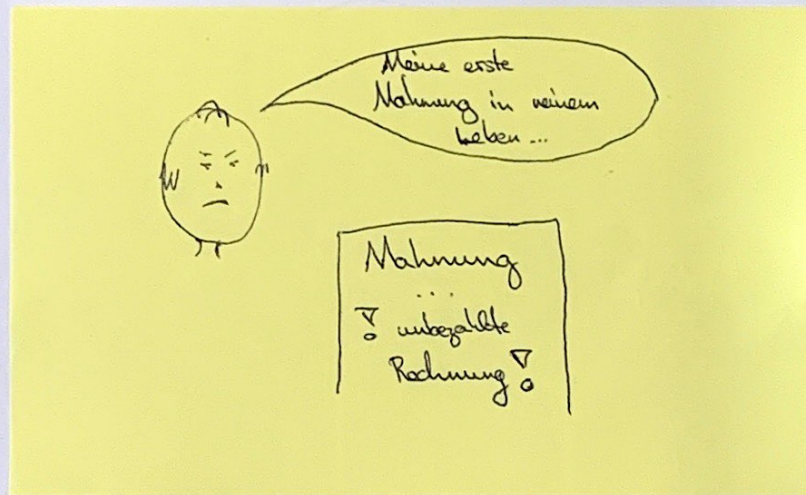 Meine erste
Mahnung in meinem
Leben...
Mahnung
...
! unbezahlte
Rechnung!